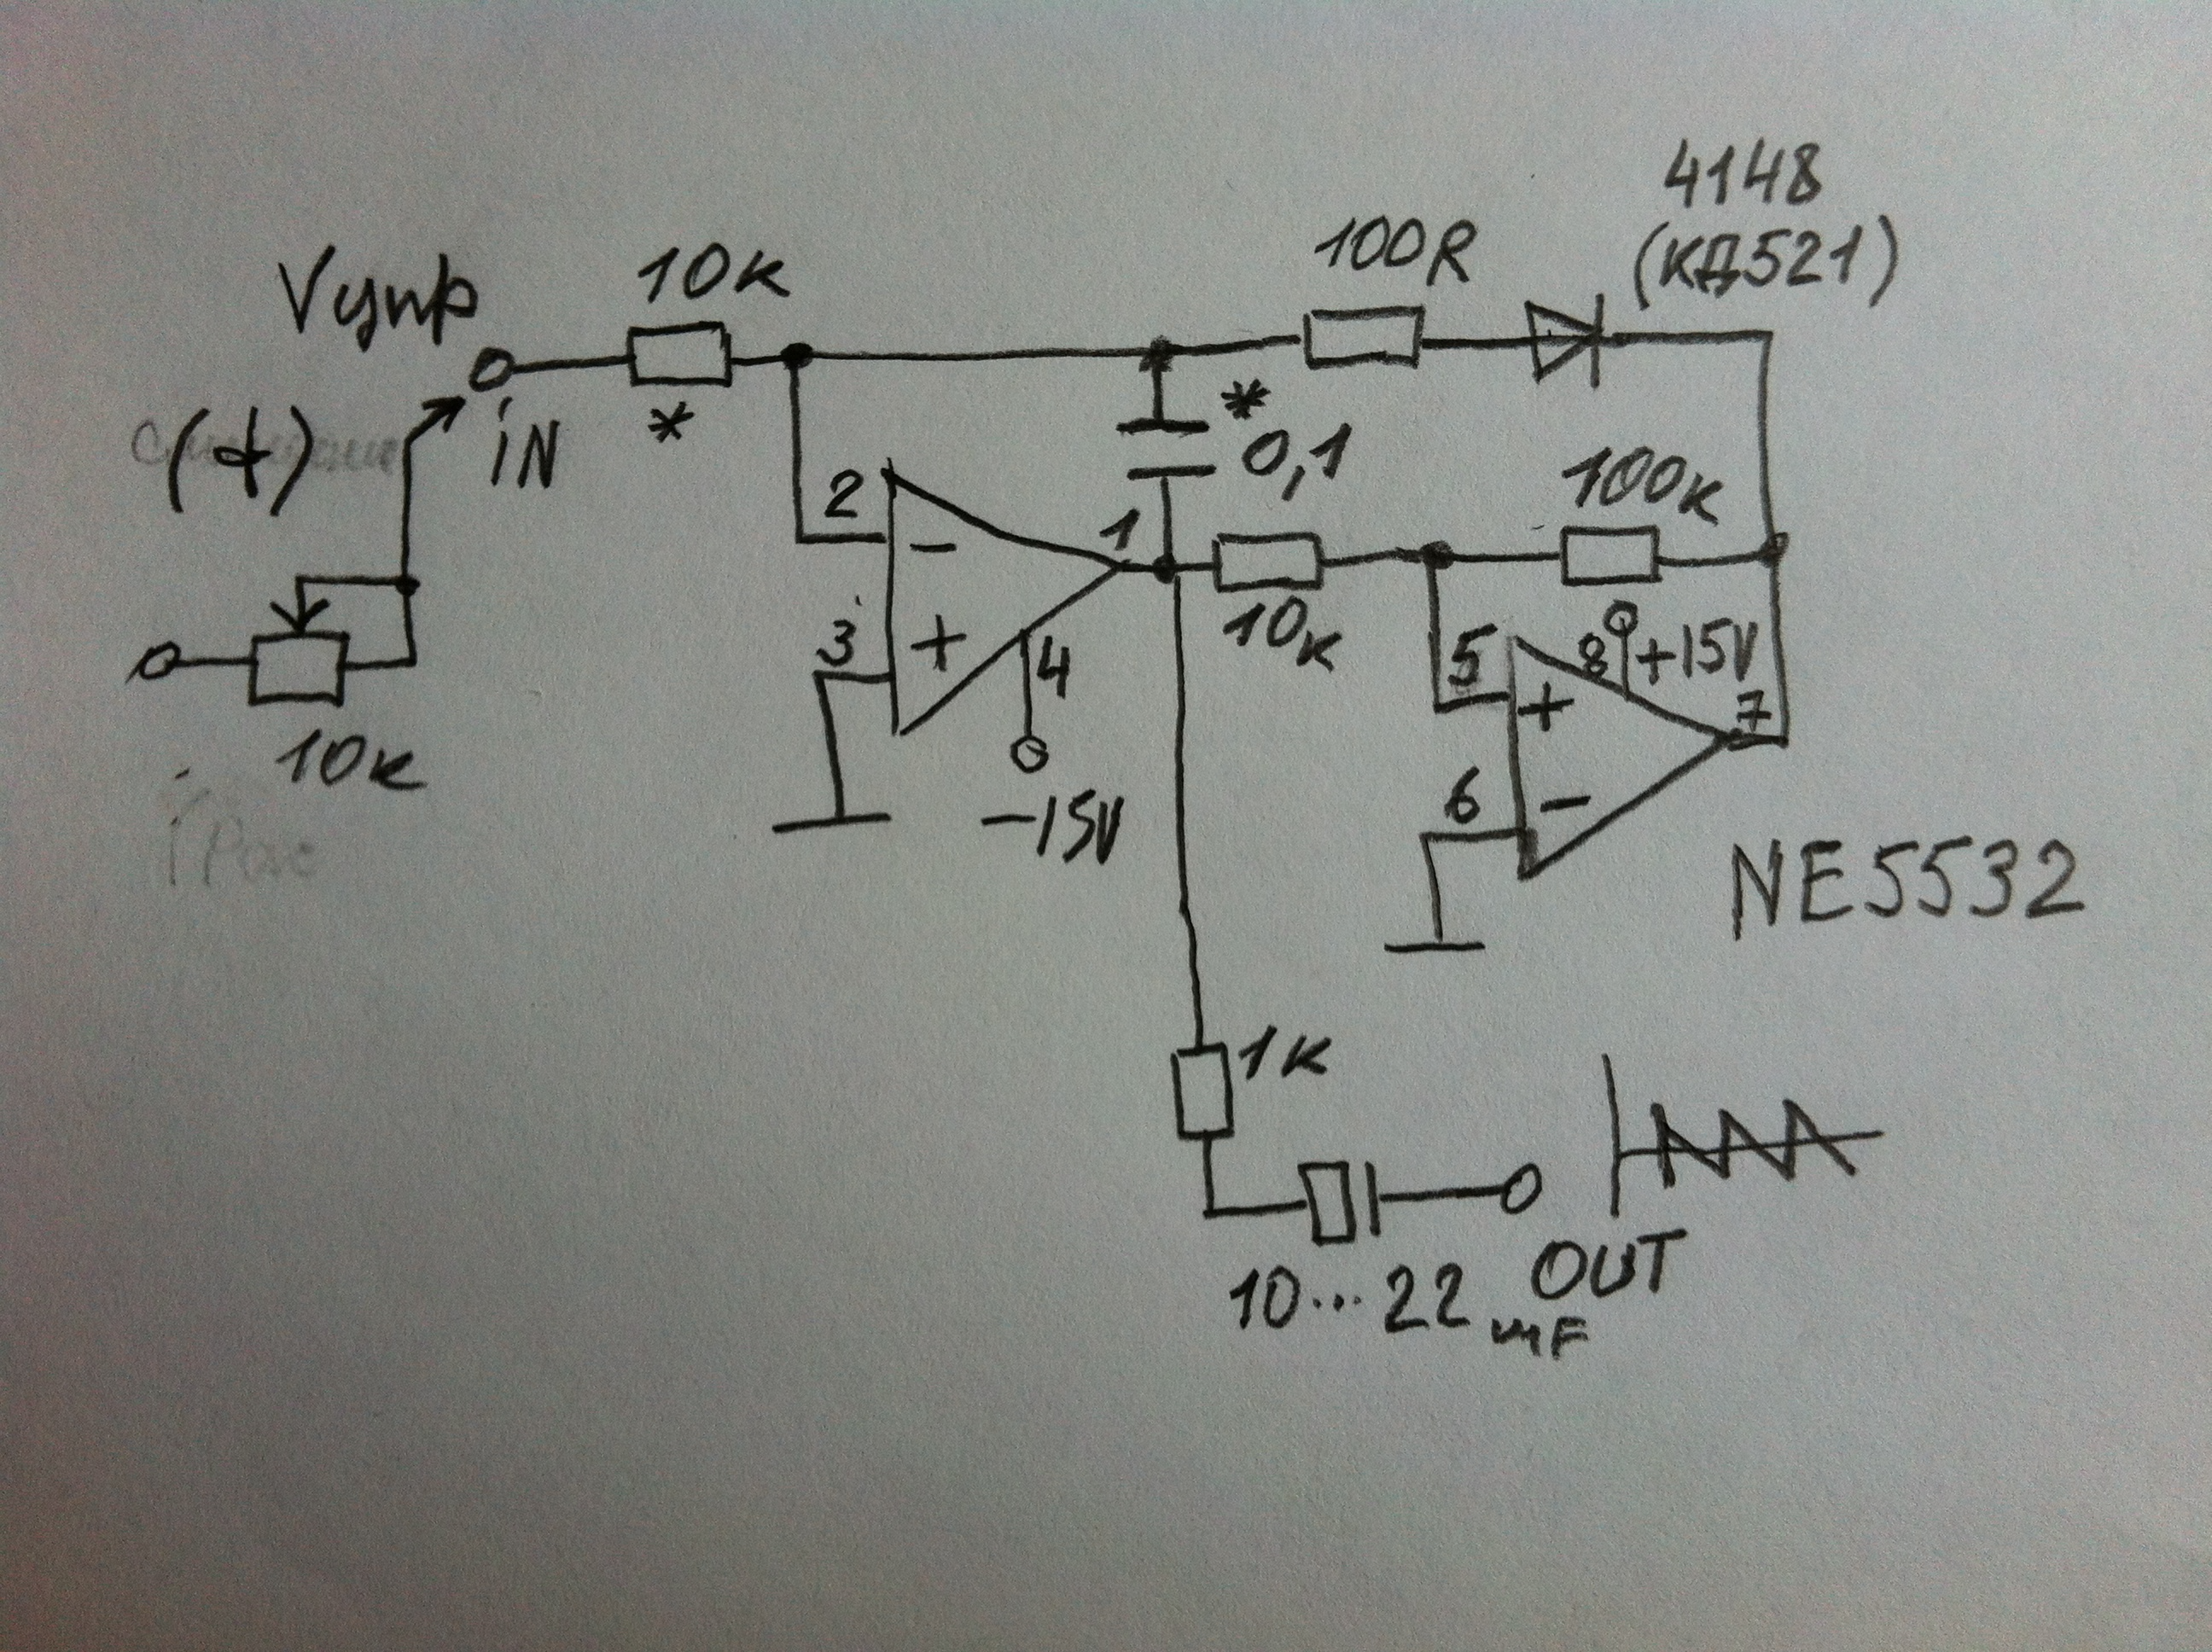 4148
(КД521)
100R
10к
Vупр
*
(+)
iN
*
0,1
100к
2
-
1
3
+
4
10к
5
8
+15V
+
7
10к
-15V
6
-
NE5532
1к
OUT
10...22 mF